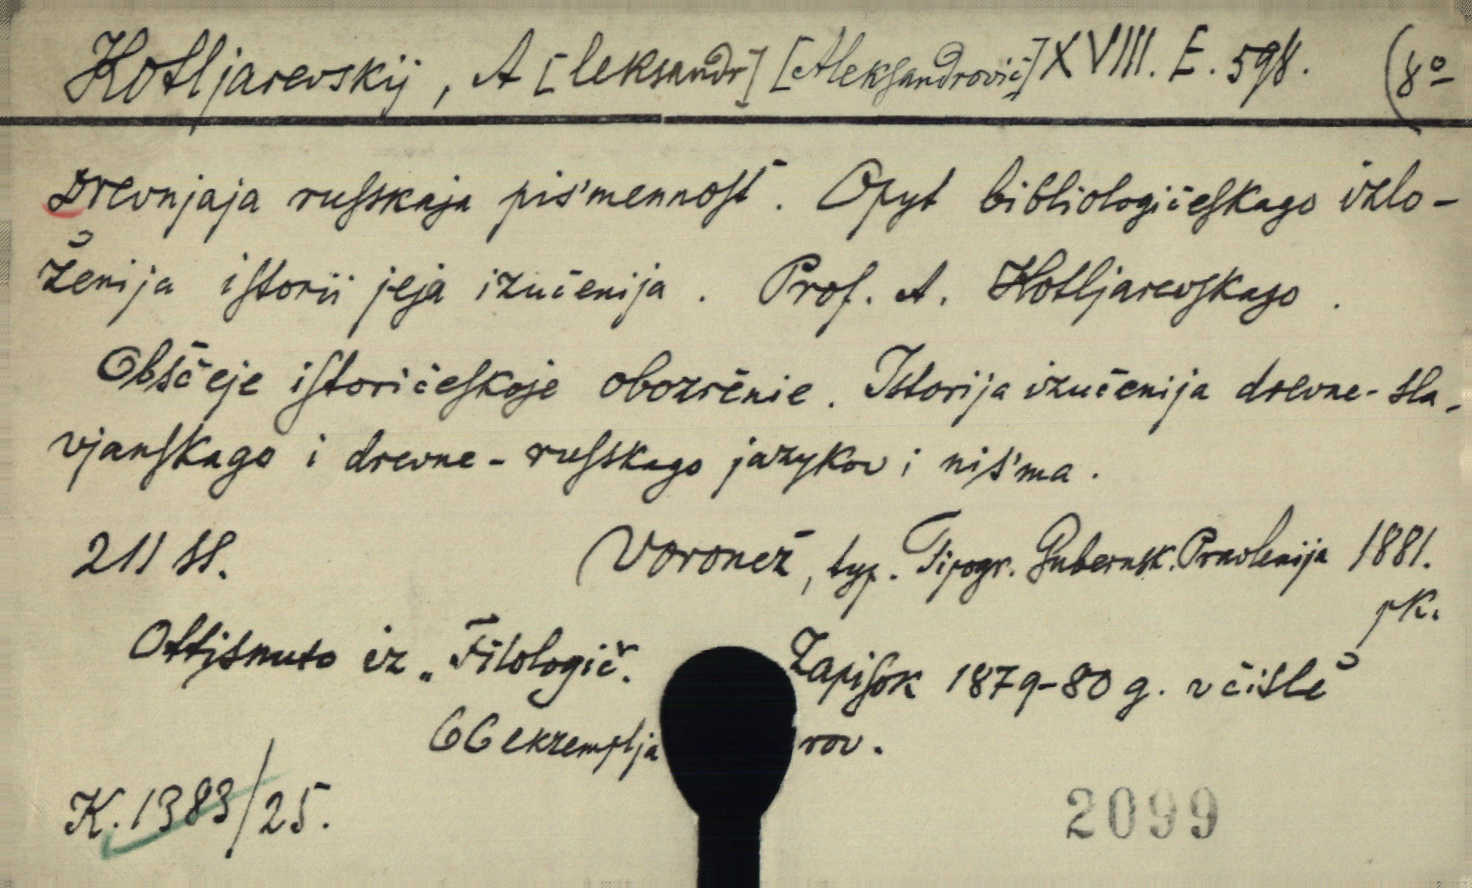 Kotljarevskij, A[leksandr] [Aleksandrovič] XVIII. E. 598. (8º
Drevnjaja russkaja piśmennost́. Opyt bibliologičeskago izlo-
ženija istorii jeja izučenija. Prof. A. Kotljarevskago.
Obščeje istoričeskoje obozrěnie. Istorija izučenija drevne-sla-
vjanskago i drevne-russkago jazykov i piśma.
211 SS. Voronež, typ. Tipogr. Gubernsk. Pravlenija 1881.
pk.
Ottisnuto iz „Filologič. Zapisok 1879-80 g. v čislě
66 ekzempljarov.
K. 1383/25.
2099